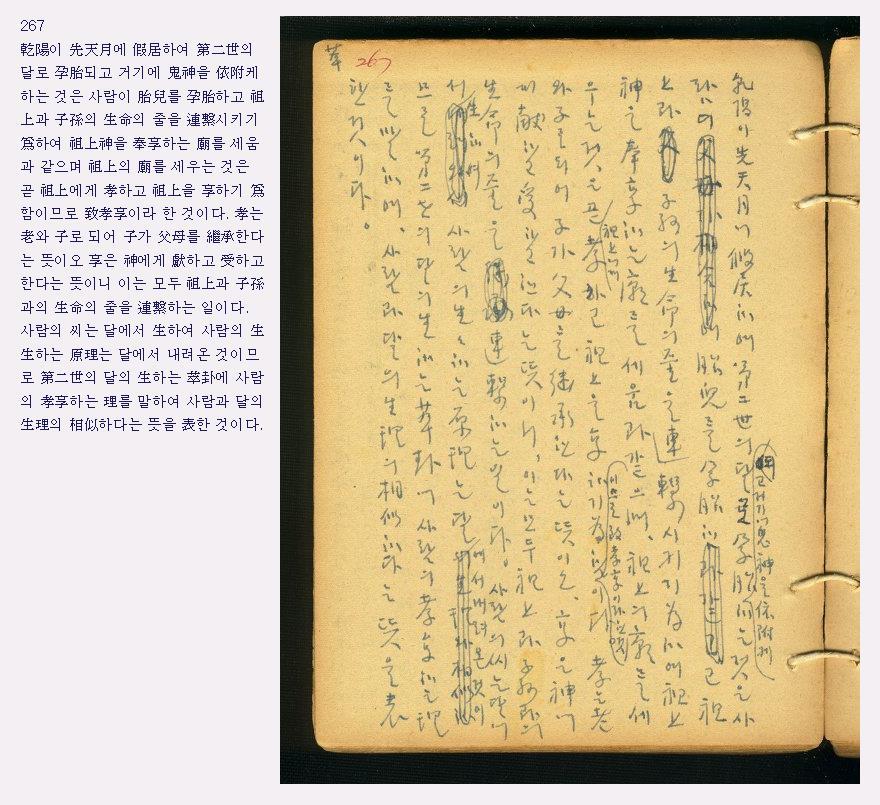 267
乾陽이 先天月에 假居하여 第二世의
달로 孕胎되고 거기에 鬼神을 依附케
하는 것은 사람이 胎兒를 孕胎하고 祖
上과 子孫의 生命의 줄을 連繫시키기
爲하여 祖上神을 奉享하는 廟를 세움
과 같으며 祖上의 廟를 세우는 것은
곧 祖上에게 孝하고 祖上을 享하기 爲
함이므로 致孝享이라 한 것이다. 孝는
老와 子로 되어 子가 父母를 繼承한다
는 뜻이오 享은 神에게 獻하고 受하고
한다는 뜻이니 이는 모두 祖上과 子孫
과의 生命의 줄을 連繫하는 일이다.
사람의 씨는 달에서 生하여 사람의 生
生하는 原理는 달에서 내려온 것이므
로 第二世의 달의 生하는 萃卦에 사람
의 孝享하는 理를 말하여 사람과 달의
生理의 相似하다는 뜻을 表한 것이다.
萃 267
乾陽이 先天月에 假居하여 第二世의 달로 孕胎 하는 것은 사
고 거기에 鬼神을 依附케
胎兒를 孕胎하고 祖
上과 子孫의 生命의 줄을 連繫시키기 爲하여 祖上
神을 奉享하는 廟를 세움과 같으며, 祖上의 廟를 세
우는 것은 곧 孝하고 祖上을 享하기 爲함이다 孝는 老
祖上에게
이므로 致孝享이라 한 것
와 子로 되어 子가 父母를 繼承한다는 뜻이오, 享은 神에
게 獻하고 受하고 한다는 뜻이니, 이는 모두 祖上과 子孫과의
生命의 줄을 連繫하는 일이다. 사람의 씨는 달에
서 生하여 사람의 生生하는 原理는 달에서 내려온 것이
므로 第二世의 달의 生하는 萃卦에 사람의 孝享하는 理
를 말하여, 사람과 달의 生理의 相似하다는 뜻을 表
한 것이다.